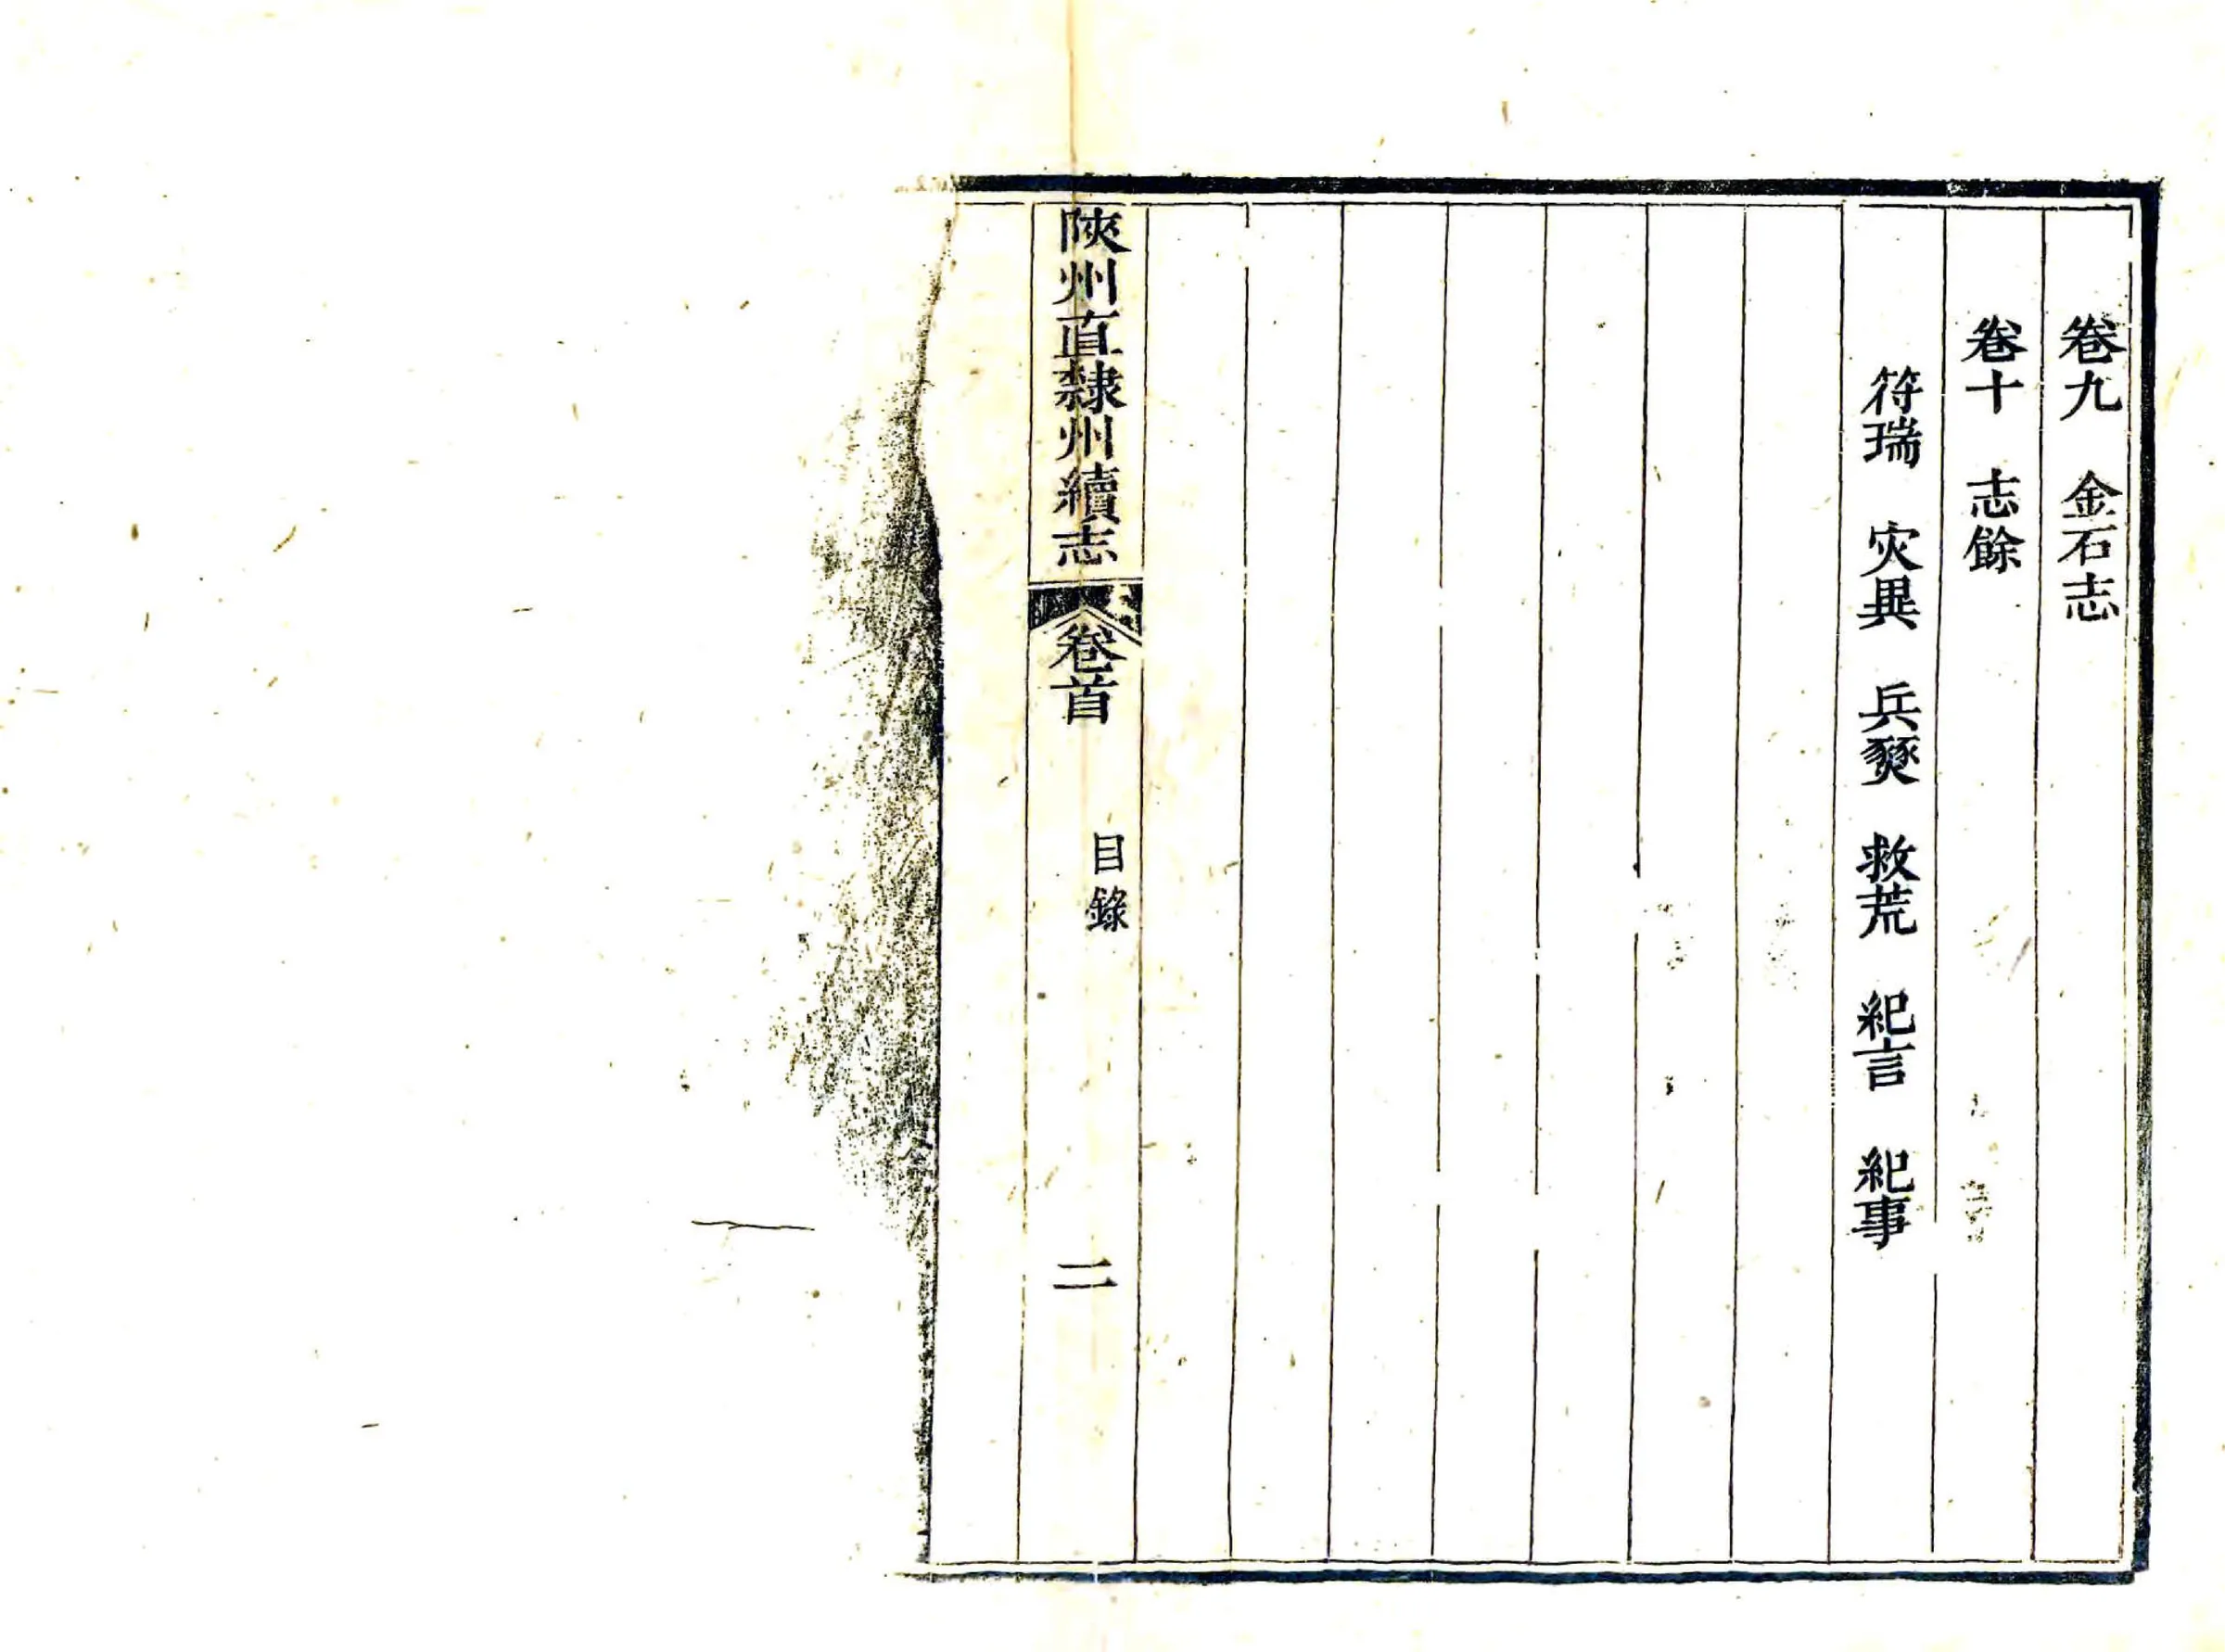 卷九　金石志
卷十　志餘
符瑞　灾異　兵燹　救荒　紀言　紀事
陝州直隸州續志　卷首　目錄　二